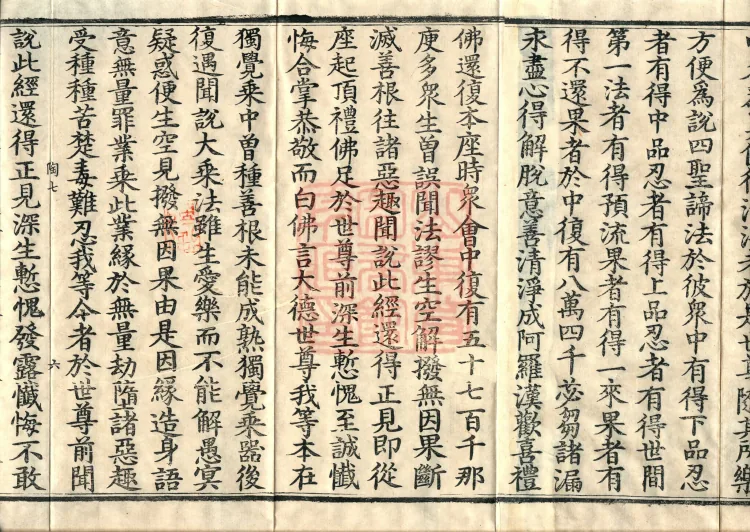 方便爲說四聖諦法於彼衆中有得下品忍
者有得中品忍者有得上品忍者有得世間
第一法者有得預流果者有得一來果者有
得不還果者於中復有八萬四千苾芻諸漏
永盡心得解脫意善清淨成阿羅漢歡喜禮
佛還復本座時衆會中復有五十七百千那
庾多衆生曾誤聞法謬生空解撥無因果斷
滅善根往諸惡趣聞說此經還得正見即從
座起頂禮佛足於世尊前深生慙愧至誠懺
悔合掌恭敬而白佛言大德世尊我等本在
獨覺乘中曾種善根未能成熟獨覺乘器後
復遇聞說大乘法雖生愛樂而不能解愚冥
疑惑便生空見撥無因果由是因緣造身語
意無量罪業乘此業緣於無量劫墮諸惡趣
受種種苦楚毒難忍我等今者於世尊前聞
陶七 六
說此經還得正見深生慙愧發露懺悔不敢